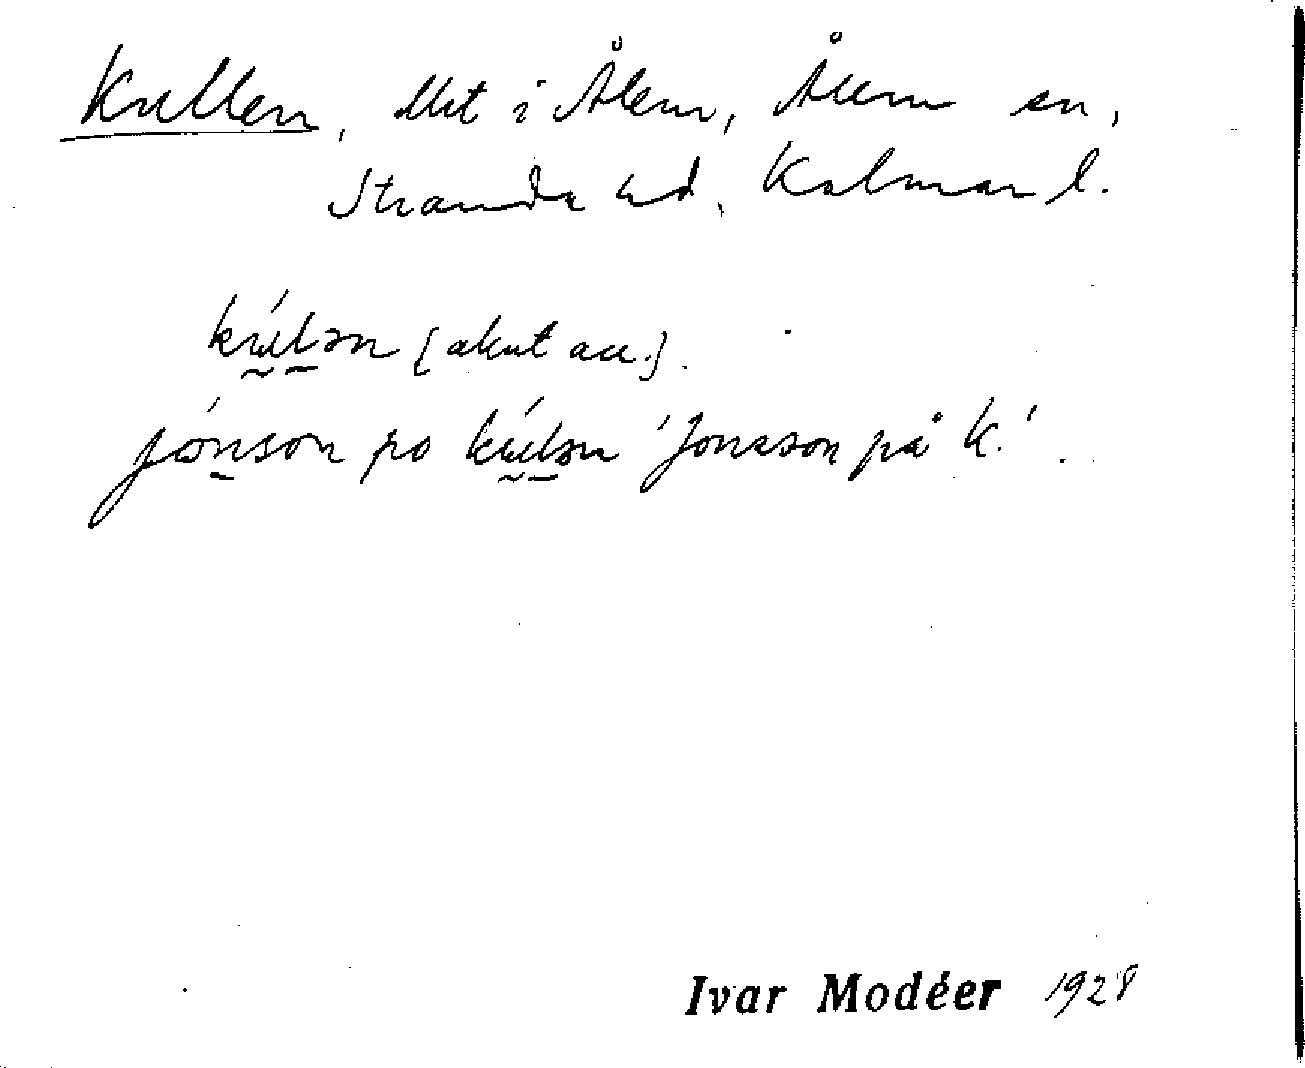 Kullen, Utt i Ålem, Ålem sn,
Stranda hd, Kalmar l.
kúlən [akut acc.].
jónson po kúlən 'Jonsson på K.'.
Ivar Modéer 1928